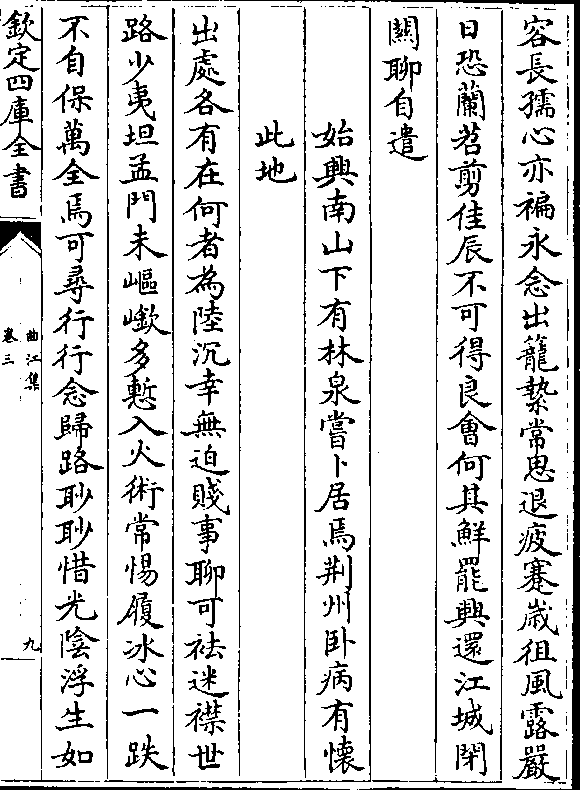 容長孺心亦褊永念出籠縶常思退疲蹇嵗徂風露嚴
日恐蘭苕剪佳辰不可得良會何其鮮罷興還江城閉
關聊自遣
始興南山下有林泉嘗卜居焉荆州卧病有懷
此地
出處各有在何者為陸沉幸無迫賤事聊可祛迷襟世
路少夷坦孟門未嶇嶔多慙入火術常惕履冰心一跌
不自保萬全焉可尋行行念歸路眇眇惜光陰浮生如
欽定四庫全書
曲江集
卷三
九